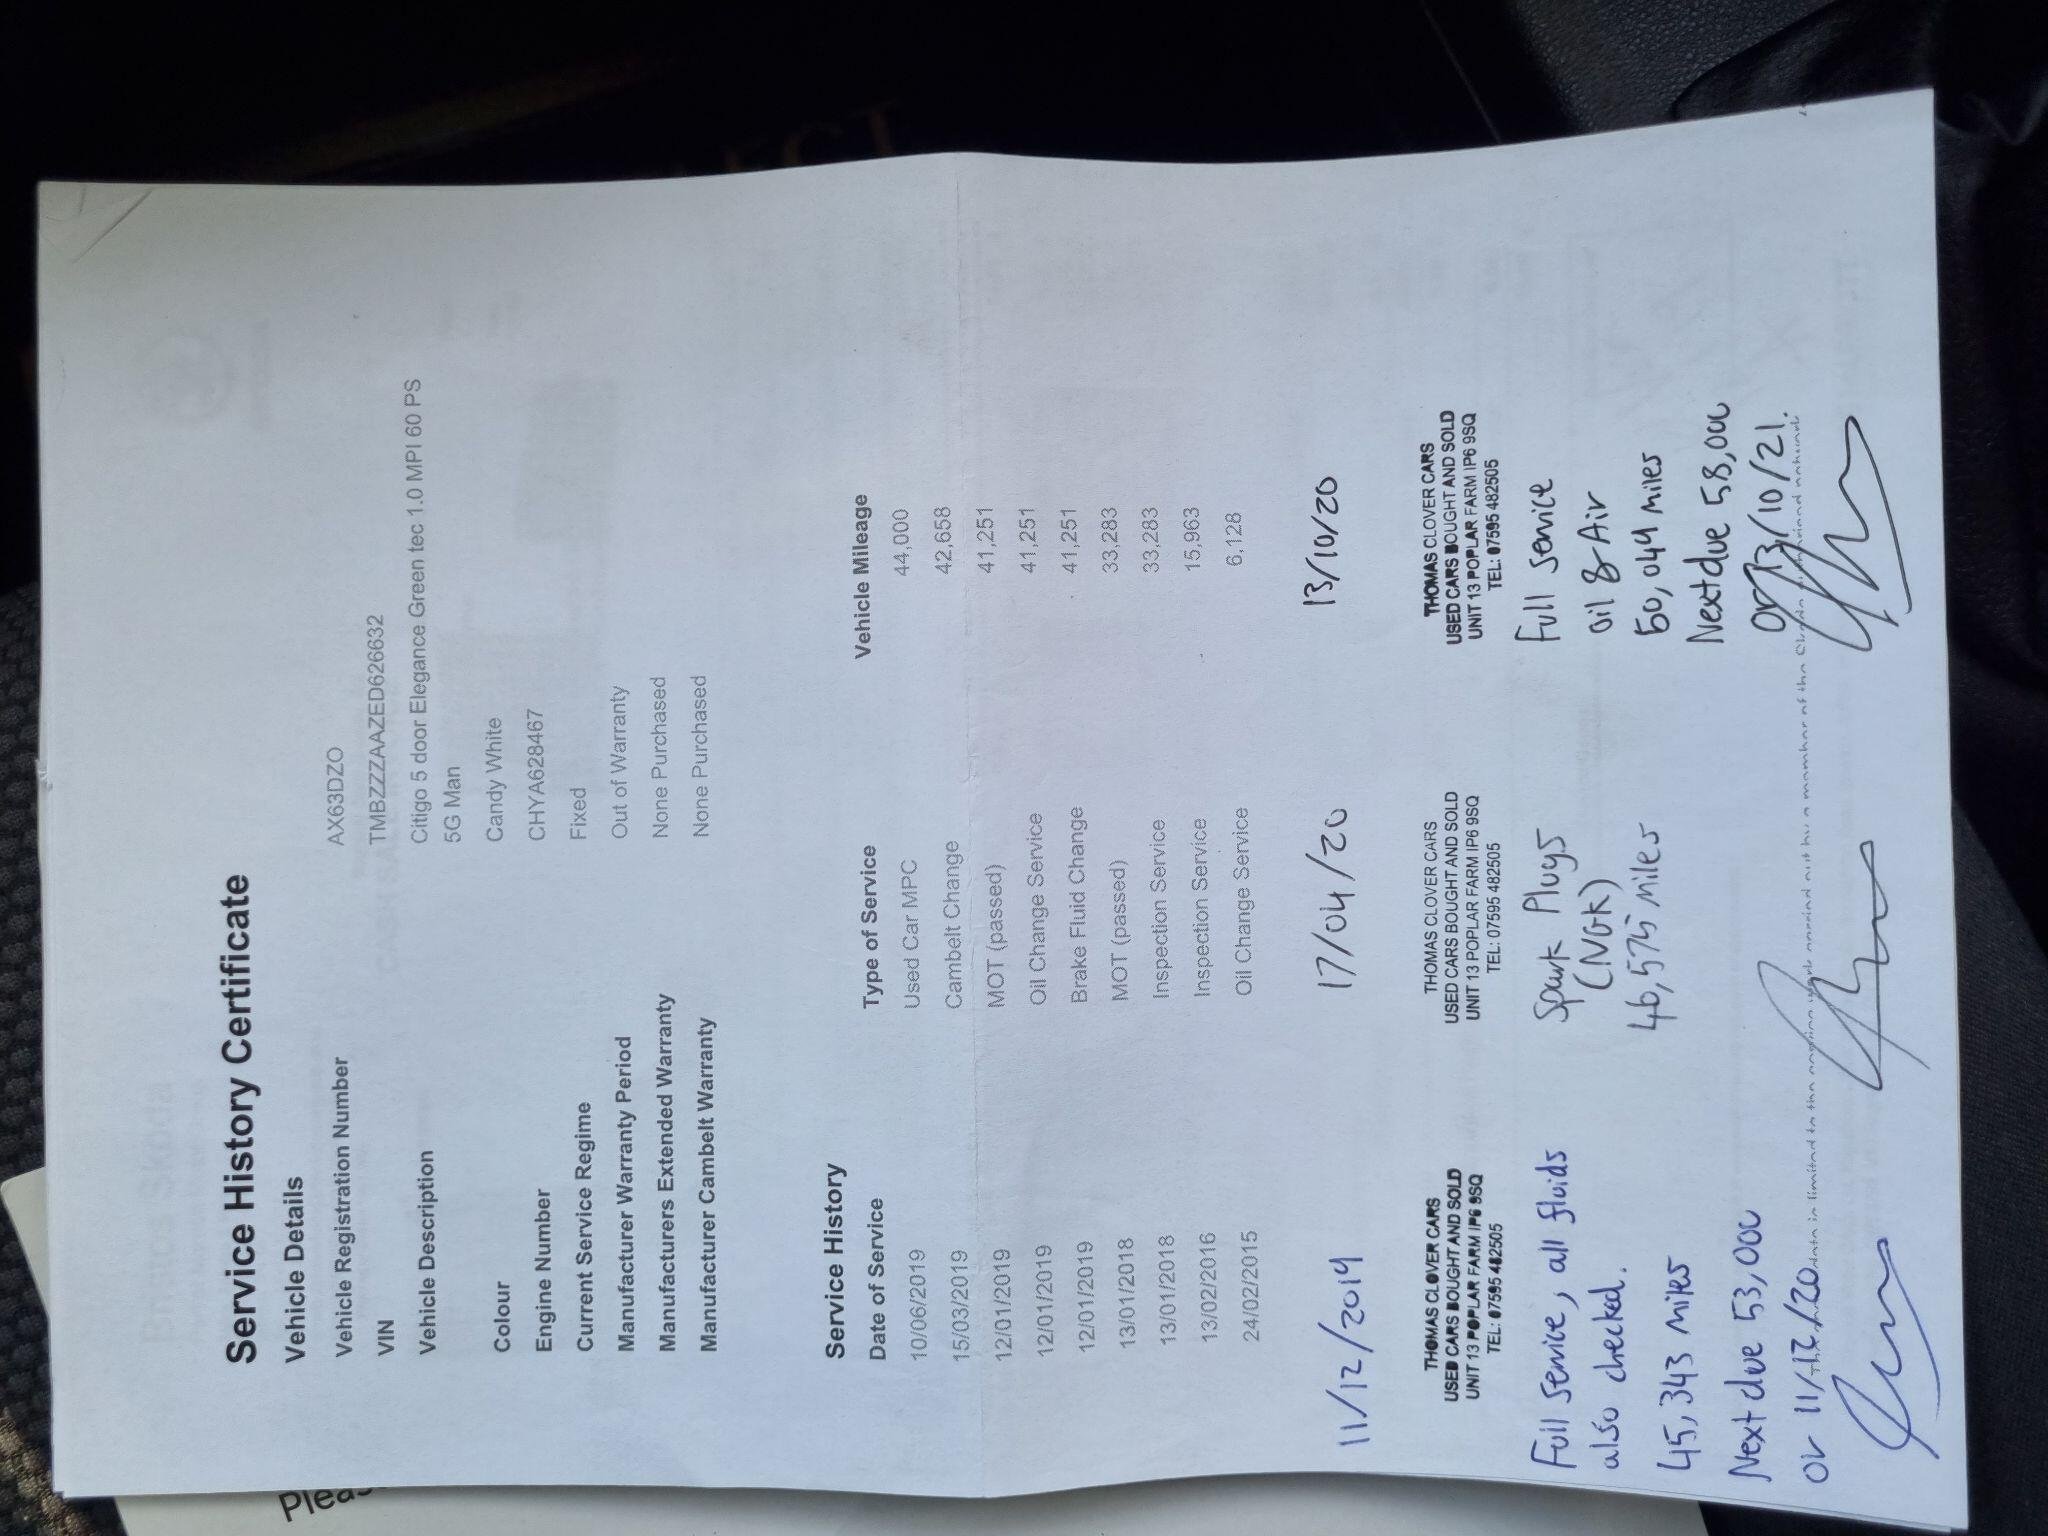 Service History Certificate
Vehicle Details
Vehicle Registration Number AX63DZO
VIN TMBZZZAAZED626632
Vehicle Description Citigo 5 door Elegance Green tec 1.0 MPI 60 PS
5G Man
Colour Candy White
Engine Number CHYA628467
Current Service Regime Fixed
Manufacturer Warranty Period Out of Warranty
Manufacturers Extended Warranty None Purchased
Manufacturer Cambelt Warranty None Purchased
Service History
Date of Service Type of Service Vehicle Mileage
10/06/2019 Used Car MPC 44,000
15/03/2019 Cambelt Change 42,658
12/01/2019 MOT (passed) 41,251
12/01/2019 Oil Change Service 41,251
12/01/2019 Brake Fluid Change 41,251
13/01/2018 MOT (passed) 33,283
13/01/2018 Inspection Service 33,283
13/02/2016 Inspection Service 15,963
24/02/2015 Oil Change Service 6,128
11/12/2019
THOMAS CLOVER CARS
USED CARS BOUGHT AND SOLD
UNIT 13 POPLAR FARM IP6 9SQ
TEL: 07595 482505
Full Service, all fluids
also checked.
45,343 miles
Next due 53,000
or 11/12/20
17/04/20
THOMAS CLOVER CARS
USED CARS BOUGHT AND SOLD
UNIT 13 POPLAR FARM IP6 9SQ
TEL: 07595 482505
Spark Plugs
(NGK)
46,575 miles
13/10/20
THOMAS CLOVER CARS
USED CARS BOUGHT AND SOLD
UNIT 13 POPLAR FARM IP6 9SQ
TEL: 07595 482505
Full Service
oil & Air
50,044 miles
Next due 58,000
or 13/10/21.